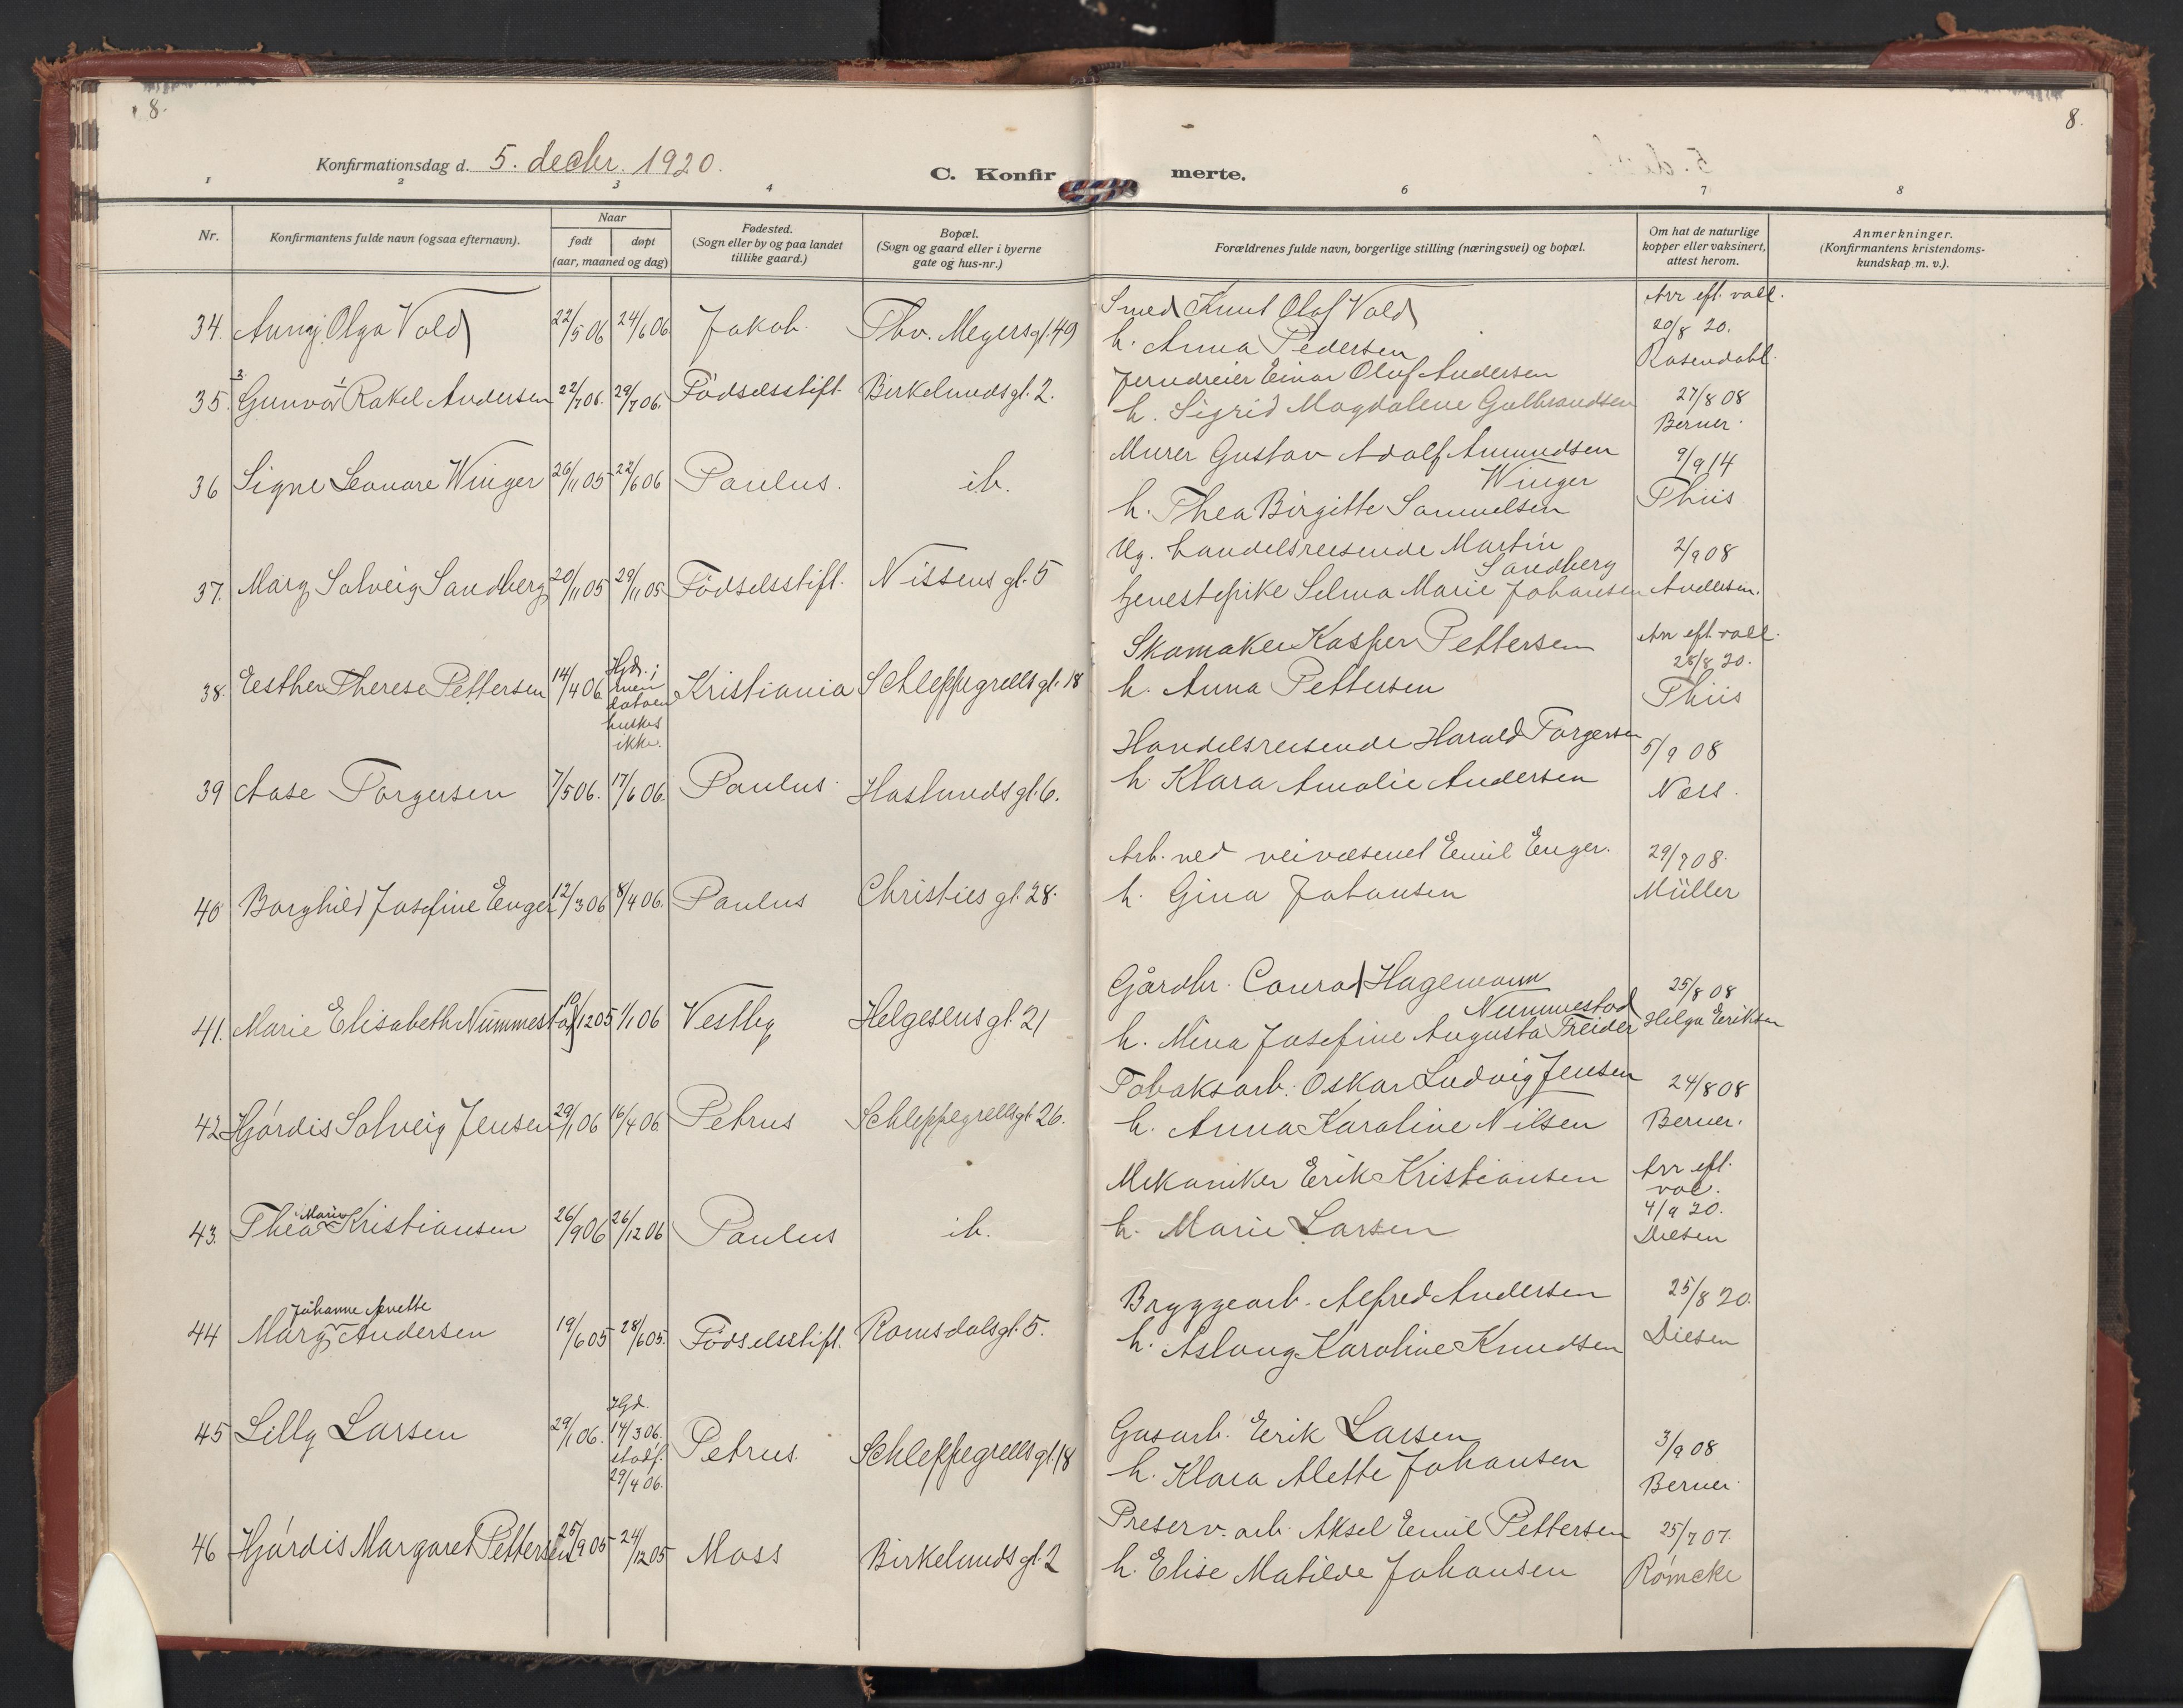 8.
8.
Konfirmationsdag d. 5. decbr. 1920.
C. Konfirmerte.
1 2 3 4 6 7 8
Nr.
Konfirmantens fulde navn (ogsaa efternavn).
Naar
født døpt
(aar, maaned og dag)
Fødested.
(Sogn eller by og paa landet
tillike gaard.)
Bopæl.
(Sogn og gaard eller i byerne
gate og hus-nr.)
Forældrenes fulde navn, borgerlige stilling (næringsvei) og bopæl.
Om hat de naturlige
kopper eller vaksinert,
attest herom.
Anmerkninger.
(Konfirmantens kristendoms-
kundskap m. v.).
34. Anny Olga Vold 22/5 06 24/6 06 Jakob. Thv. Meyersgt. 49
Smed Knut Olaf Vold
h. Anna Pedersen
Arr eft. vacc.
20/8 20.
Rosendahl.
35. Gunvor Rakel Andersen 22/7 06. 29/7 06. Födselsstift. Birkelundsgt. 2.
Jerndreier Einar Oluf Andersen
h. Sigrid Magdalene Gulbrandsen
27/8 08
Berner.
36 Signe Leonore Winger 26/11 05 22/6 06 Paulus. ib.
Murer Gustav Adolf Amundsen
Winger
h. Thea Birgitte Samuelsen
9/9 14
Thiis
37. Mary Solveig Sandberg 20/11 05 29/11 05 Födselsstift. Nissens gt. 5
Ug. handelsreisende Martin
Sandberg
tjenestepike Selma Marie Johansen
2/9 08
Andersen.
38. Esther Therese Pettersen 14/4 06 Hjd.;
men
datoen
huskes
ikke.
Kristiania Schleppegrells gt. 18
Skomaker Kasper Pettersen
h. Anna Pettersen
Arr eft. vacc.
28/8 20.
Thiis
39 Aase Torgersen 7/5 06. 17/6 06. Paulus Haslunds gt. 6.
Handelsreisende Harald Torgersen
h. Klara Amalie Andersen
5/9 08
Næss.
40 Borghild Josefine Enger 12/3 06 8/4 06. Paulus Christies gt. 28.
Arb. ved veivæsenet Emil Enger.
h. Gina Johansen
29/7 08.
Müller
41. Marie Elisabeth Nummestad 10/12 05 1/1 06 Vestby Helgesens gt. 21
Gårdbr. Conrad Hagemann
Nummestad
h. Mina Josefine Augusta Treider
25/8 08
Helga Eriksen
42 Hjördis Solveig Jensen 29/1 06 16/4 06. Petrus Schleppegrellsgt 26.
Tobaksarb. Oskar Ludvig Jensen
h. Anna Karoline Nilsen
24/8 08
Berner.
43. Thea Marie Kristiansen 26/9 06 26/12 06 Paulus ib.
Mekaniker Erik Kristiansen
h. Marie Larsen
Arr eft.
vac.
4/9 20.
Diesen
44 Mary Johanne Annette Andersen 19/6 05 28/6 05. Födselsstift. Romsdalsgt. 5.
Bryggearb. Alfred Andersen
h. Aslaug Karoline Knudsen
25/8 20.
Diesen
45 Lilly Larsen 29/1 06. Hjd.
14/3 06.
stadf.
29/4 06.
Petrus. Schleppegrells gt. 18
Gasarb. Erik Larsen
h. Klara Alette Johansen
3/9 08
Berner.
46 Hjördis Margaret Pettersen 25/9 05 24/12 05 Moss Birkelunds gt. 2
Preserv. arb. Aksel Emil Pettersen
h. Elise Matilde Johansen
25/7 07.
Römcke